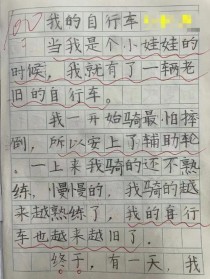 我的自行车
当我是个小娃娃的
时候，我就有了一辆老
旧的自行车。
我一开始骑最怕摔
倒，所以安上了辅助轮
。一上来我骑的还不熟
练，慢慢的，我骑的越
来越熟练了，我的自行
车也越来越旧了。
终于，有一天，我